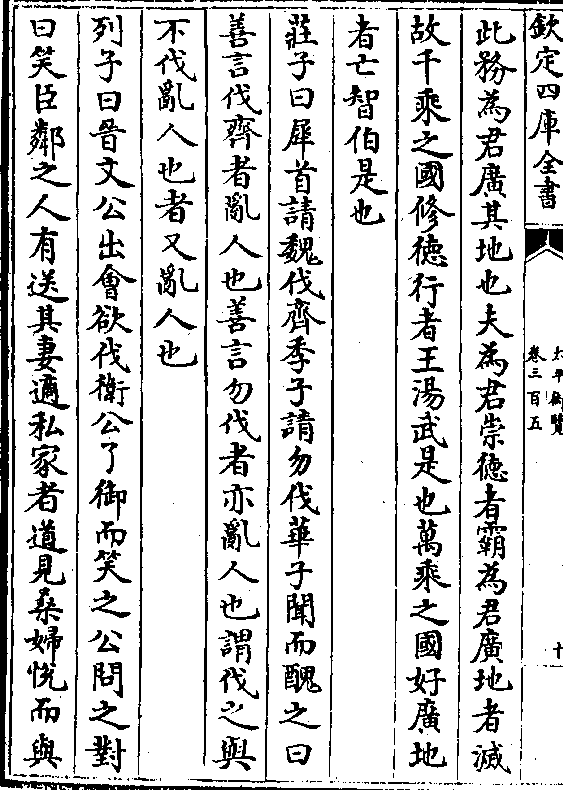 欽定四庫全書
太平御覽
卷三百五
十
此務為君廣其地也夫為君崇德者霸為君廣地者滅
故千乘之國修德行者王湯武是也萬乘之國好廣地
者亡智伯是也
莊子曰犀首請魏伐齊季子請勿伐華子聞而醜之曰
善言伐齊者亂人也善言勿伐者亦亂人也謂伐之與
不伐亂人也者又亂人也
列子曰晉文公出會欲伐衛公子御而笑之公問之對
曰笑臣鄰之人有送其妻適私家者道見桑婦悅而與